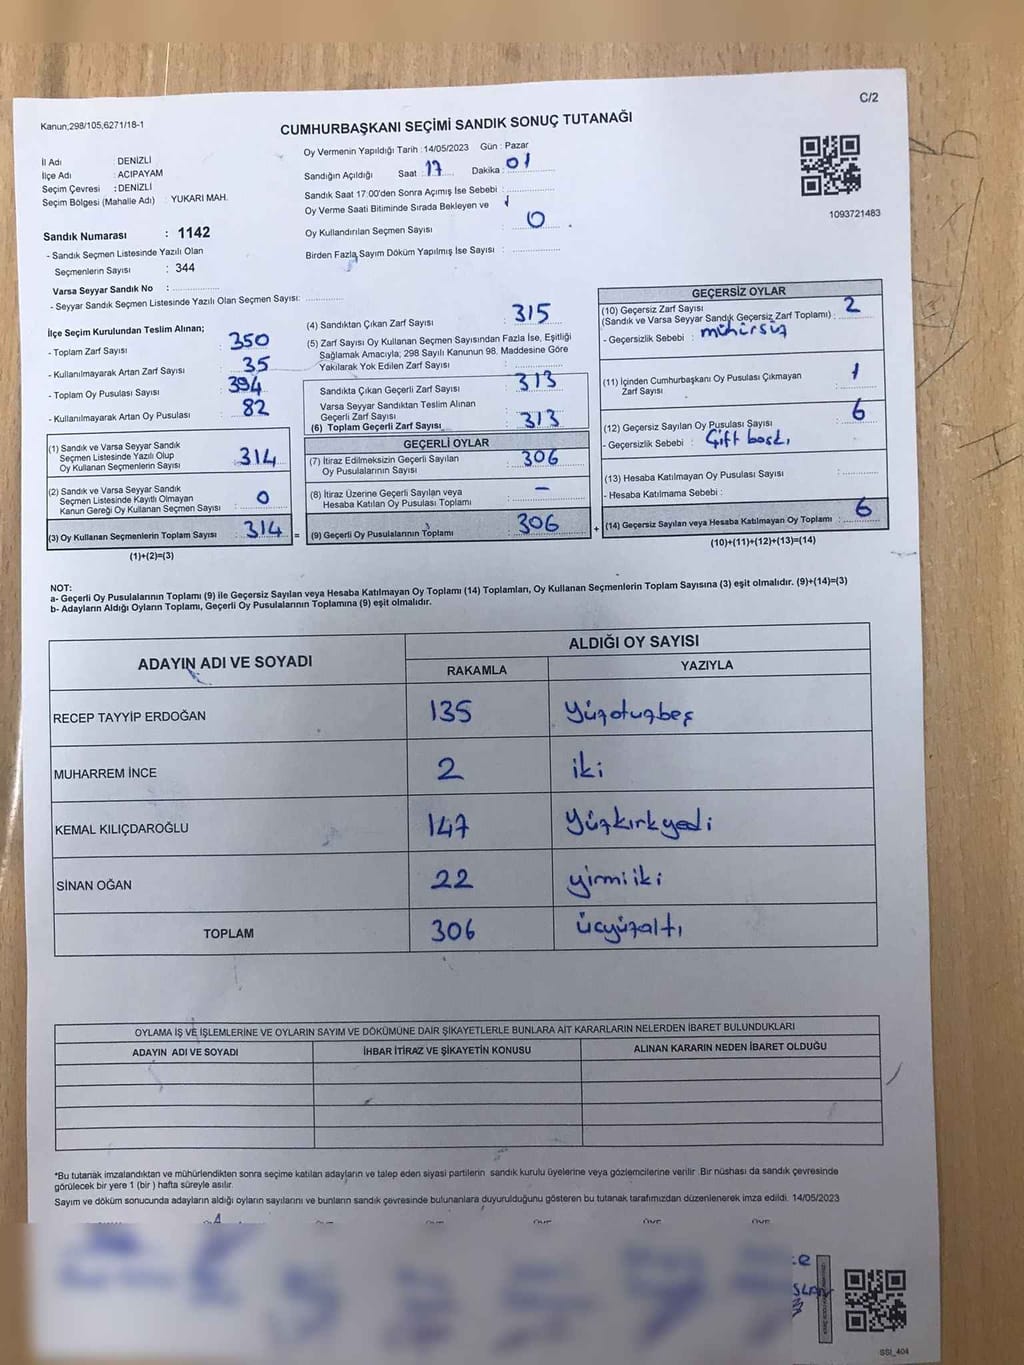 C/2
Kanun,298/105,6271/18-1
CUMHURBAŞKANI SEÇİMİ SANDIK SONUÇ TUTANAĞI
İl Adı DENİZLİ
İlçe Adı : ACIPAYAM
Seçim Çevresi : DENİZLİ
Seçim Bölgesi (Mahalle Adı) YUKARI MAH.
Sandık Numarası : 1142
- Sandık Seçmen Listesinde Yazılı Olan
Seçmenlerin Sayısı : 344
Varsa Seyyar Sandık No :
- Seyyar Sandık Seçmen Listesinde Yazılı Olan Seçmen Sayısı:
Oy Vermenin Yapıldığı Tarih : 14/05/2023 Gün : Pazar
Sandığın Açıldığı Saat : 17 Dakika : 01
Sandık Saat 17:00'den Sonra Açımış İse Sebebi :
Oy Verme Saati Bitiminde Sırada Bekleyen ve
Oy Kullandırılan Seçmen Sayısı : 0
Birden Fazla Sayım Döküm Yapılmış İse Sayısı :
1093721483
İlçe Seçim Kurulundan Teslim Alınan;
- Toplam Zarf Sayısı : 350
- Kullanılmayarak Artan Zarf Sayısı : 35
- Toplam Oy Pusulası Sayısı : 394
- Kullanılmayarak Artan Oy Pusulası : 82
(1) Sandık ve Varsa Seyyar Sandık
Seçmen Listesinde Yazılı Olup
Oy Kullanan Seçmenlerin Sayısı : 314
(2) Sandık ve Varsa Seyyar Sandık
Seçmen Listesinde Kayıtlı Olmayan
Kanun Gereği Oy Kullanan Seçmen Sayısı : 0
(3) Oy Kullanan Seçmenlerin Toplam Sayısı : 314 =
(1)+(2)=(3)
(4) Sandıktan Çıkan Zarf Sayısı : 315
(5) Zarf Sayısı Oy Kullanan Seçmen Sayısından Fazla İse, Eşitliği
Sağlamak Amacıyla; 298 Sayılı Kanunun 98. Maddesine Göre
Yakılarak Yok Edilen Zarf Sayısı :
Sandıkta Çıkan Geçerli Zarf Sayısı : 313
Varsa Seyyar Sandıktan Teslim Alınan
Geçerli Zarf Sayısı :
(6) Toplam Geçerli Zarf Sayısı : 313
GEÇERLİ OYLAR
(7) İtiraz Edilmeksizin Geçerli Sayılan
Oy Pusulalarının Sayısı : 306
(8) İtiraz Üzerine Geçerli Sayılan veya
Hesaba Katılan Oy Pusulası Toplamı : –
(9) Geçerli Oy Pusulalarının Toplamı : 306 +
GEÇERSİZ OYLAR
(10) Geçersiz Zarf Sayısı
(Sandık ve Varsa Seyyar Sandık Geçersiz Zarf Toplamı) : 2
- Geçersizlik Sebebi : mühürsüz
(11) İçinden Cumhurbaşkanı Oy Pusulası Çıkmayan
Zarf Sayısı : 1
(12) Geçersiz Sayılan Oy Pusulası Sayısı : 6
- Geçersizlik Sebebi : Çift baskı
(13) Hesaba Katılmayan Oy Pusulası Sayısı :
- Hesaba Katılmama Sebebi :
(14) Geçersiz Sayılan veya Hesaba Katılmayan Oy Toplamı : 6
(10)+(11)+(12)+(13)=(14)
NOT:
a- Geçerli Oy Pusulalarının Toplamı (9) ile Geçersiz Sayılan veya Hesaba Katılmayan Oy Toplamı (14) Toplamları, Oy Kullanan Seçmenlerin Toplam Sayısına (3) eşit olmalıdır. (9)+(14)=(3)
b- Adayların Aldığı Oyların Toplamı, Geçerli Oy Pusulalarının Toplamına (9) eşit olmalıdır.
ADAYIN ADI VE SOYADI ALDIĞI OY SAYISI
RAKAMLA YAZIYLA
RECEP TAYYİP ERDOĞAN 135 Yüzotuzbeş
MUHARREM İNCE 2 iki
KEMAL KILIÇDAROĞLU 147 Yüzkırkyedi
SİNAN OĞAN 22 yirmiiki
TOPLAM 306 Üçyüzaltı
OYLAMA İŞ VE İŞLEMLERİNE VE OYLARIN SAYIM VE DÖKÜMÜNE DAİR ŞİKAYETLERLE BUNLARA AİT KARARLARIN NELERDEN İBARET BULUNDUKLARI
ADAYIN ADI VE SOYADI İHBAR İTİRAZ VE ŞİKAYETİN KONUSU ALINAN KARARIN NEDEN İBARET OLDUĞU
*Bu tutanak imzalandıktan ve mühürlendikten sonra seçime katılan adayların ve talep eden siyasi partilerin sandık kurulu üyelerine veya gözlemcilerine verilir. Bir nüshası da sandık çevresinde
görülecek bir yere 1 (bir ) hafta süreyle asılır.
Sayım ve döküm sonucunda adayların aldığı oyların sayılarını ve bunların sandık çevresinde bulunanlara duyurulduğunu gösteren bu tutanak tarafımızdan düzenlenerek imza edildi. 14/05/2023
SSI_404